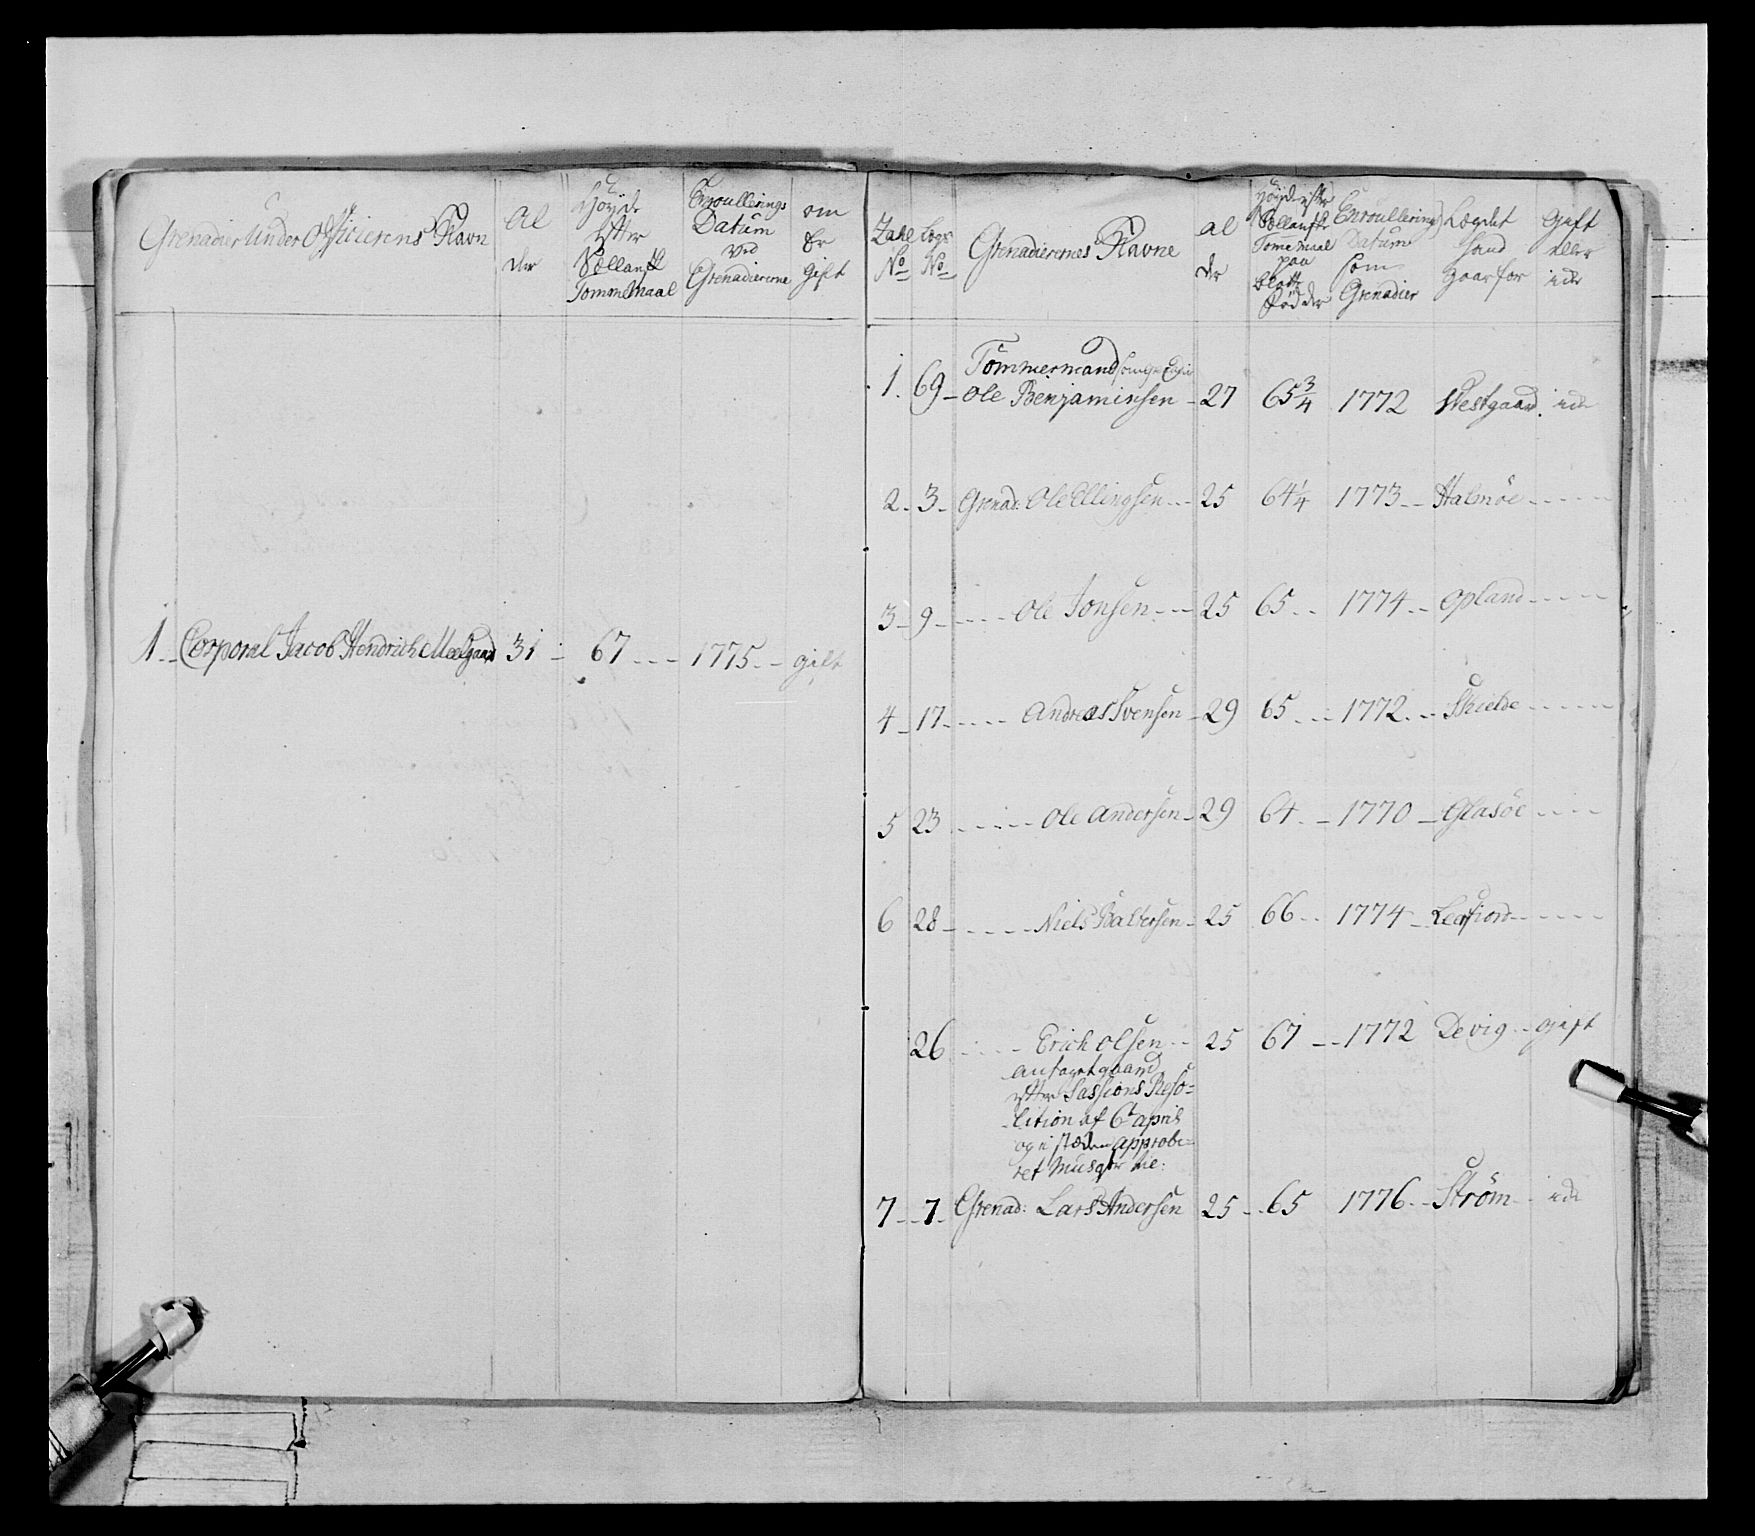 Grenadier Under Officierens Navn
Al
der
Høyde
Efter
Sællansk
Tomme Maal
Enroullerings
Datum
ved
Grenadiererne
om
Er
gift
1 Corporal Jacob Hendrich 31 67 1775 gift
Zahl
No
No
Grenadierernes Navne
al
der
Høyde efter
Sællansk
Tome Maal
paa
blotte
Fødder
Enroullerings
Datum
som
Grenadier
Lægdet
hand
gaar for
Gift
eller
icke
Tømmermand
1. 69 Ole Benjaminsen 27 65 3/4 1772 Westgaard icke
2 3 Grenad: Ole Ellingsen 25 64 1/4 1773 Halmøe
3 9 Ole Jonsen 25 65 1774 Opland
4 17 Andreas Svensen 29 65 1772 Skielde
5 23 Ole Andersen 29 64 1770 Glasøe
6 28 Niels Baltersen 25 66 1774 Leerfiord
26 Erich Olsen 25 67 1772 Devig gift
efter Sessions Reso-
lution af 6t april
og i stæden approbe-
ret Musqtr
7 7 Grenad: Lars Andersen 25 65 1776 Strøm icke